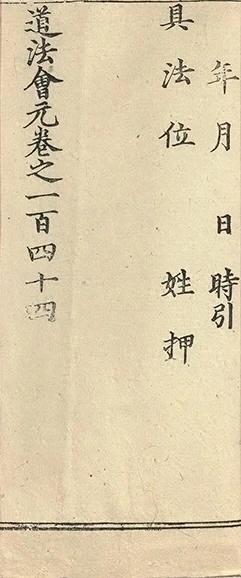 年月日時引
具法位姓押
道法會元卷之一百四十四